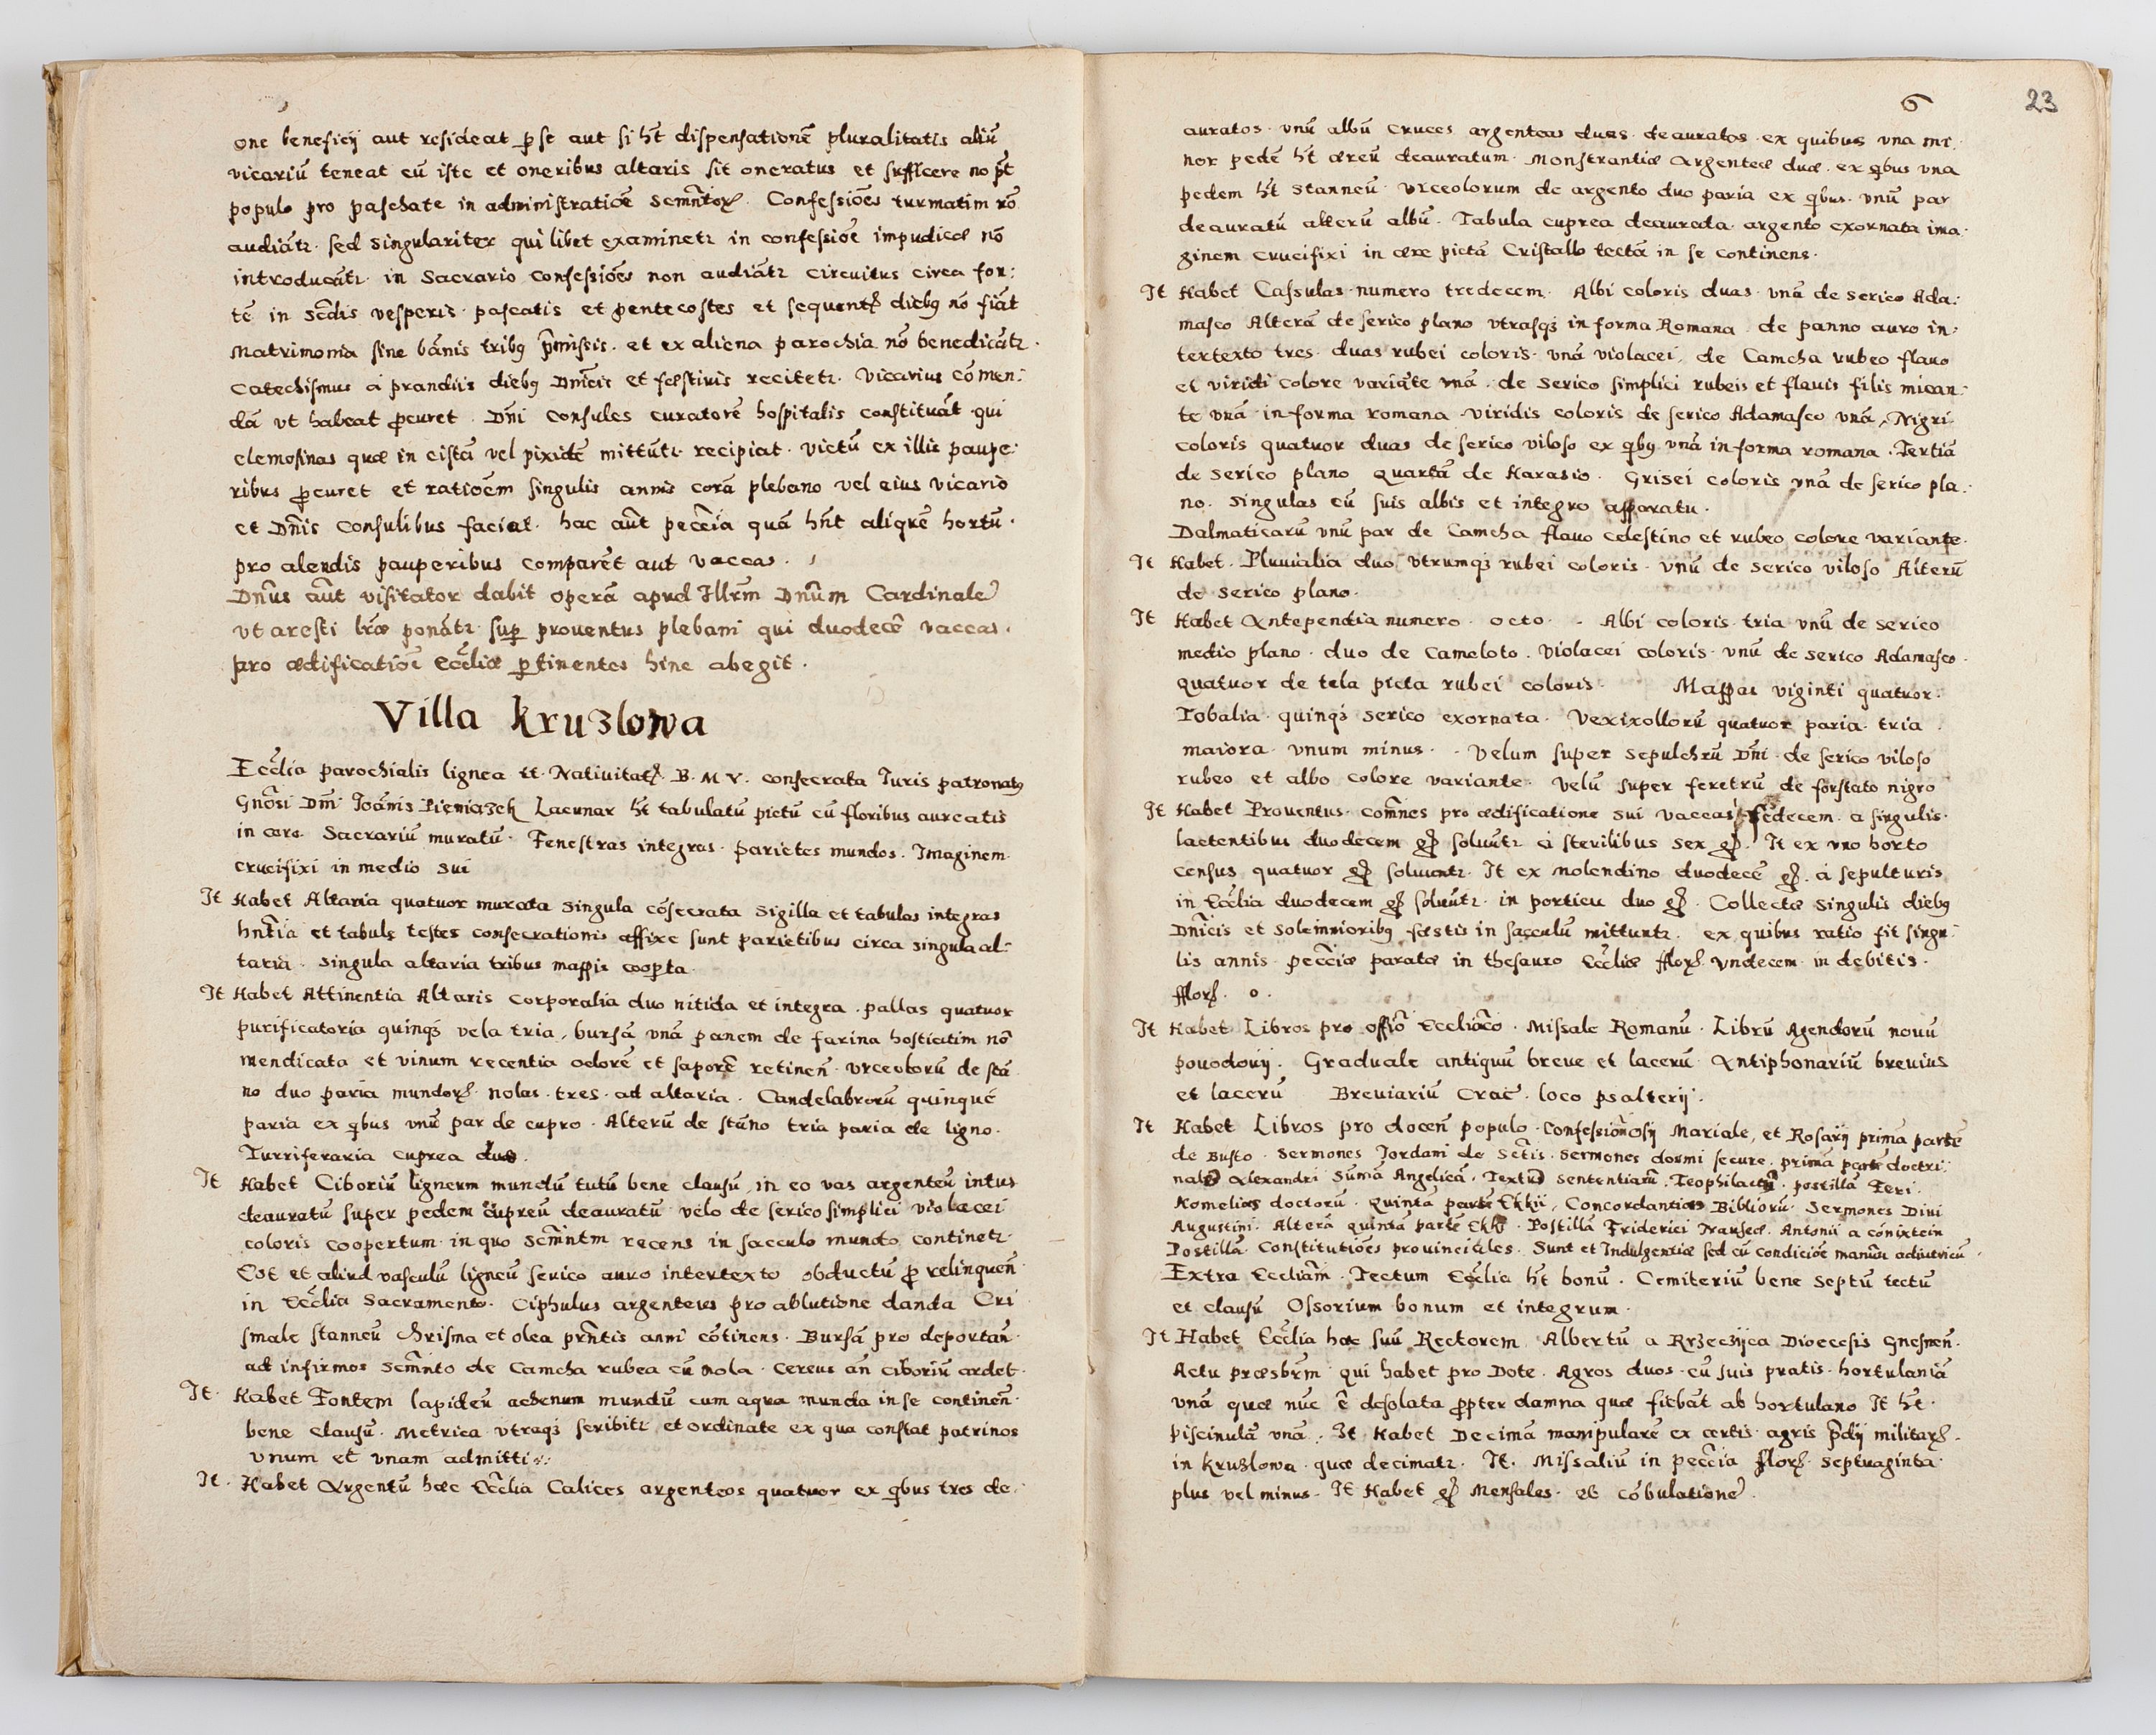 one beneficij aut resideat p se aut si hēt dispensationē pluralitatis aliū
vicariū teneat cū iste et oneribus altaris sit oneratus et sufficere nō pt̄
populo pro paschate in administratiōe Confessiōes turmatim nō
audiātr sed singulariter quilibet examinetr in confessiōe impudicæ nō
introducātr in Sacrario Confessiōes non audiātr circuitus circa fon:
tē in vesperis pascatis et pentecostes et diebȝ nō fiāt
Matrimonia sine bānis tribȝ p̄missis et ex aliena parochia nō benedicātr
Catechismus à prandiis diebȝ Dnīcis et fæstivis recitetr. Vicarius cōmen:
dā vt habeat p̱curet. Dn̄i Consules curatorē hospitalis constituāt qui
elemosinas quæ in cistā vel pixidē mittūtr recipiat victū ex illis paupe:
ribus p̱curet et ratioēm singulis annis corā plebano vel eius vicario
et Dn̄is Consulibus faciat. hac aūt peccīa quā hn̄t aliqrē hortū
pro alendis pauperibus comparēt aut vaccas.
Dn̄us aūt visitator dabit operā apud Illrm̄ Dnūm Cardinalē
vt aresti lr̄æ ponātr sup̱ proventus plebani qui duodecē vaccas
pro ædificatiōe Eccliæ p̱tinentes hinc abegit.
Villa Kruzlowa
Ecclīa parochialis lignea tt. Nativitatꝭ B. M V. consecrata Juris patronatȝ
Gnōsi Dn̄i Joānis Pieniazek Lacunar hēt tabulatū pictū cū floribus aureatis
in Sacrariū muratū. Fenestras integras. parietes mundos. Imaginem
crucifixi in medio sui
It Habet Altaria quatuor murata singula cōsecrata Sigilla et tabulas integras
hn̄tia et tabulę testes consecrationis affixe sunt parietibus circa singula al:
taria. Singula altaria tribus mappis coop̱ta
It Habet Attinentia Altaris Corporalia duo nitida et integra. pallas quatuor
purificatoria quinqȝ vela tria, bursā unā panem de farina hosticitim nō
mendicata et vinum recentia odorē et saporē retinen̄. Vrceolorū de stā
no duo paria mundorꝭ nolas tres ad altaria. Candelabrorū quinque
paria ex qbus vnū par de cupro. Alterū de stāno tria paria de ligno.
Turriferaria cuprea duo.
It Habet Ciboriū ligneum mundū tutū bene clausū, in eo vas argenteū intus
deauratū super pedem cupreū deauratū velo de serico simplici violacei
coloris coopertum in quo Scm̄ntm recens in sacculo mundo continetr
Est et aliud vasculū ligneū serico auro intertexto obductū p̱ relinquen̄
in Ecclīa Sacramento. Ciphulus argenteus pro ablutione danda Cri
smale stanneū chrisma et olea prn̄tis anni cōtinens. Bursā pro deportan̄
ad infirmos Scm̄nto de Camcha rubea cū nola. Cereus an̄ ciboriū ardet
It Habet Fontem lapideū achenum mundū cum aqua munda in se continen̄
bene clausū. Metrica vtraqȝ scribitr et ordinate ex qua constat patrinos
vnum et vnam admitti
It. Habet Argentū hæc Ecclīa Calices argenteos quatuor ex qbus tres de:
6 23
auratos. vnū albū Cruces argenteas duas deauratas ex quibus vna mi:
nor pedē hēt æreū deauratum. Monstrantiæ Argenteæ duæ ex qbus vna
pedem hēt stanneū. Vrceolorum de argento duo paria ex qbus vnū par
deauratū alterū albū. Tabula cuprea deaurata argento exornata ima:
ginem crucifixi in ære pictā Cristallo tectā in se continens.
It Habet Casulas numero tredecem. Albi coloris duas vnā de serico Ada:
masco Alterā de serico plano vtrasqȝ in forma Romana de panno auro in:
tertexto tres duas rubei coloris vnā violacei, de Camcha rubeo flavo
et viridi colore variāte vnā. de serico simplici rubeis et flavis filis mican:
te vnā in forma romana viridis coloris de serico Adamasco vnā. Nigri
coloris quatuor duas de serico viloso ex qbȝ vnā in forma romana. Tertiā
de serico plano quartā de Harasio. Grisei coloris vnā de serico pla:
no. Singulas cū suis albis et integro apparatu.
Dalmaticarū vnū par de Camcha flavo celestino et rubeo colore variante.
It Habet Pluvialia duo vtrumqȝ rubei coloris vnū de serico viloso Alterū
de serico plano.
It Habet Antependia numero octo. Albi coloris tria vnū de serico
medio plano duo de Cameloto. Violacei coloris vnū de serico Adamasco.
quatuor de tela picta rubei coloris. Mappas viginti quatuor.
Tobalia quinqȝ serico exornata. Vexixollorū quatuor paria tria
maiora vnum minus. Velum super sepulchrū Dn̄i de serico viloso
rubeo et albo colore variante. Velū super feretrū de forstato nigro
It Habet Proventus pro ædificatione sui vaccas sedecem a singulis
lactentibus duodecem gꝭ solvūtr à sterilibus sex gꝭ. It ex vno horto
census quatuor gꝭ solvuntr. It ex molendino duodecē gꝭ à sepulturis
in Ecclīa duodecem gꝭ solvūtr in porticu duo gꝭ. Collectæ singulis diebȝ
Dnīcis et solemnioribȝ fæstis in sacculū mittuntr ex quibus ratio fit singu:
lis annis peccīæ paratæ in thesauro Ecclīæ fflorꝭ Vndecem in debitis.
fflorꝭ. 0.
It Habet Libros pro offiō Eccliāco. Missale Romanū. Librū Agendorū novū
povodovij. Graduale antiquū breve et lacerū Antiphonariū brevius
et lacerū Breviariū Crac̄. loco psalterij.
It Habet Libros pro docen̄ populo. Mariale, et Rosarij primā partē
de Busto. Sermones Jordani de Sētis. Sermones dormi secure. primā partē doctri:
Alexandri Sūmā Angelicā. Sententiarū. postillā Feri.
Homelias doctorū. quintā partē Ekkii, Concordantias Bibliorū. Sermones Divi
Augustini. Alterā quintā partē Ekkii. Postillā Friderici Nauseæ. Antonii a cōnixtein
Postillā. Constitutiōes provinciales. Sunt et Indulgentiæ sed cū condiciōe manūū adiutricū
Extra Eccliām. Tectum Ecclīa hēt bonū. Cemiteriū bene septū tectū
et clausū Ossorium bonum et integrum.
It Habet Ecclīa hæc suū Rectorem Albertū a Rrzeczijca Diocesis Gnesnen̄.
Actu præsbrm̄ qui habet pro Dote. Agros duos cū suis pratis hortulaniā
vnā quæ nūc ē desolata p̱pter damna quæ fiebāt ab hortulano It hēt
piscinulā vnā. It Habet Decimā manipularē ex certis agris p̄dij militarꝭ.
in Kruzlowa quæ decimatr. It. Missaliū in peccīa florꝭ septuaginta
plus vel minus. It Habet gꝭ Mensales et cōbulationē.